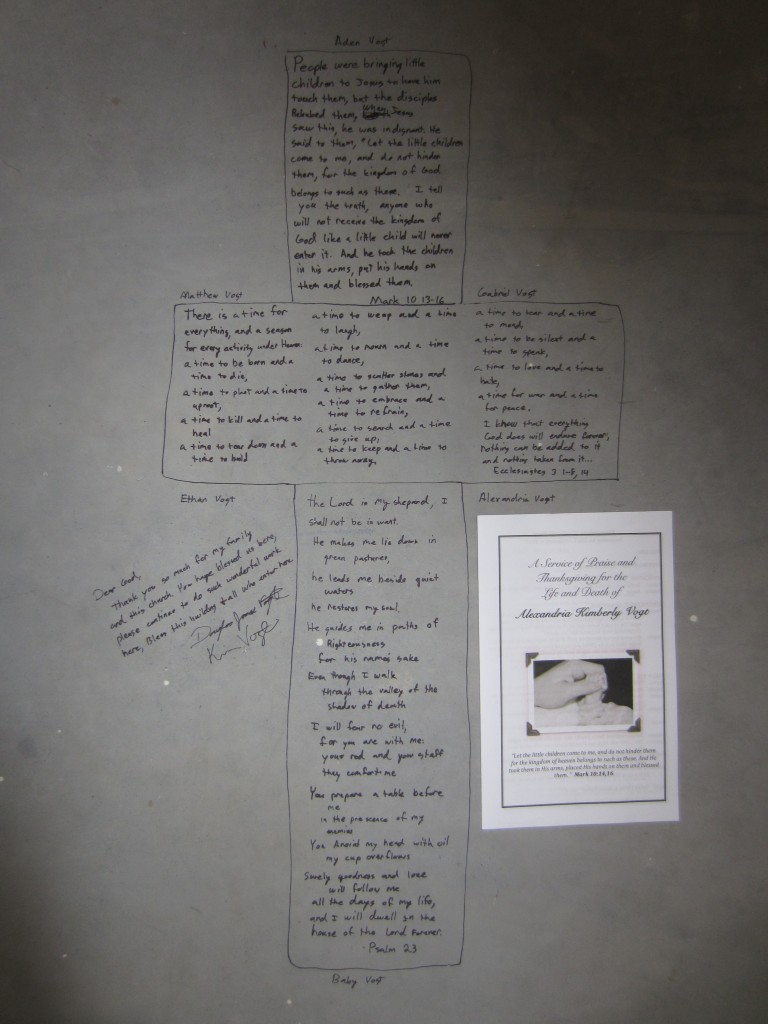 Aden Vogt
People were bringing little
children to Jesus to have him
touch them, but the disciples
Rebuked them, When Jesus
saw this, he was indignant. He
said to them, "Let the little children
come to me, and do not hinder
them, for the kingdom of God
belongs to such as these. I tell
you the truth, anyone who
will not receive the kingdom of
God like a little child will never
enter it. And he took the children
in his arms, put his hands on
them and blessed them.
Mark 10 13-16
Matthew Vogt
There is a time for
everything, and a season
for every activity under Heaven:
a time to be born and a
time to die,
a time to plant and a time to
uproot,
a time to kill and a time to
heal
a time to tear down and a
time to build
a time to weep and a time
to laugh,
a time to mourn and a time
to dance,
a time to scatter stones and
a time to gather them,
a time to embrace and a
time to refrain,
a time to search and a time
to give up,
a time to keep and a time to
throw away,
Gabriel Vogt
a time to tear and a time
to mend,
a time to be silent and a
time to speak,
a time to love and a time to
hate,
a time for war and a time
for peace.
I know that everything
God does will endure forever,
nothing can be added to it
and nothing taken from it...
Ecclesiastes 3 1-8, 14
Ethan Vogt
Alexandria Vogt
The Lord is my sheperd, I
shall not be in want.
He makes me lie down in
green pastures,
he leads me beside quiet
waters
he restores my soul.
He guides me in paths of
Righteousness
for his names sake
Even though I walk
through the valley of the
shadow of death
I will fear no evil,
for you are with me;
your rod and your staff
they comfort me
You prepare a table before
me
in the presence of my
enemies
You Anoint my head with oil
my cup overflows
Surely goodness and love
will follow me
all the days of my life,
and I will dwell in the
house of the Lord Forever.
Psalm 23
Baby Vogt
Dear God,
Thank you so much for my family
and this church. You have blessed us here,
please continue to do such wonderful work
here, Bless this building & all who enter here
Kim Vogt
A Service of Praise and
Thanksgiving for the
Life and Death of
Alexandria Kimberly Vogt
"Let the little children come to me, and do not hinder them
for the kingdom of heaven belongs to such as these. And He
took them in His arms, placed His hands on them and blessed
them. " Mark 10:14,16